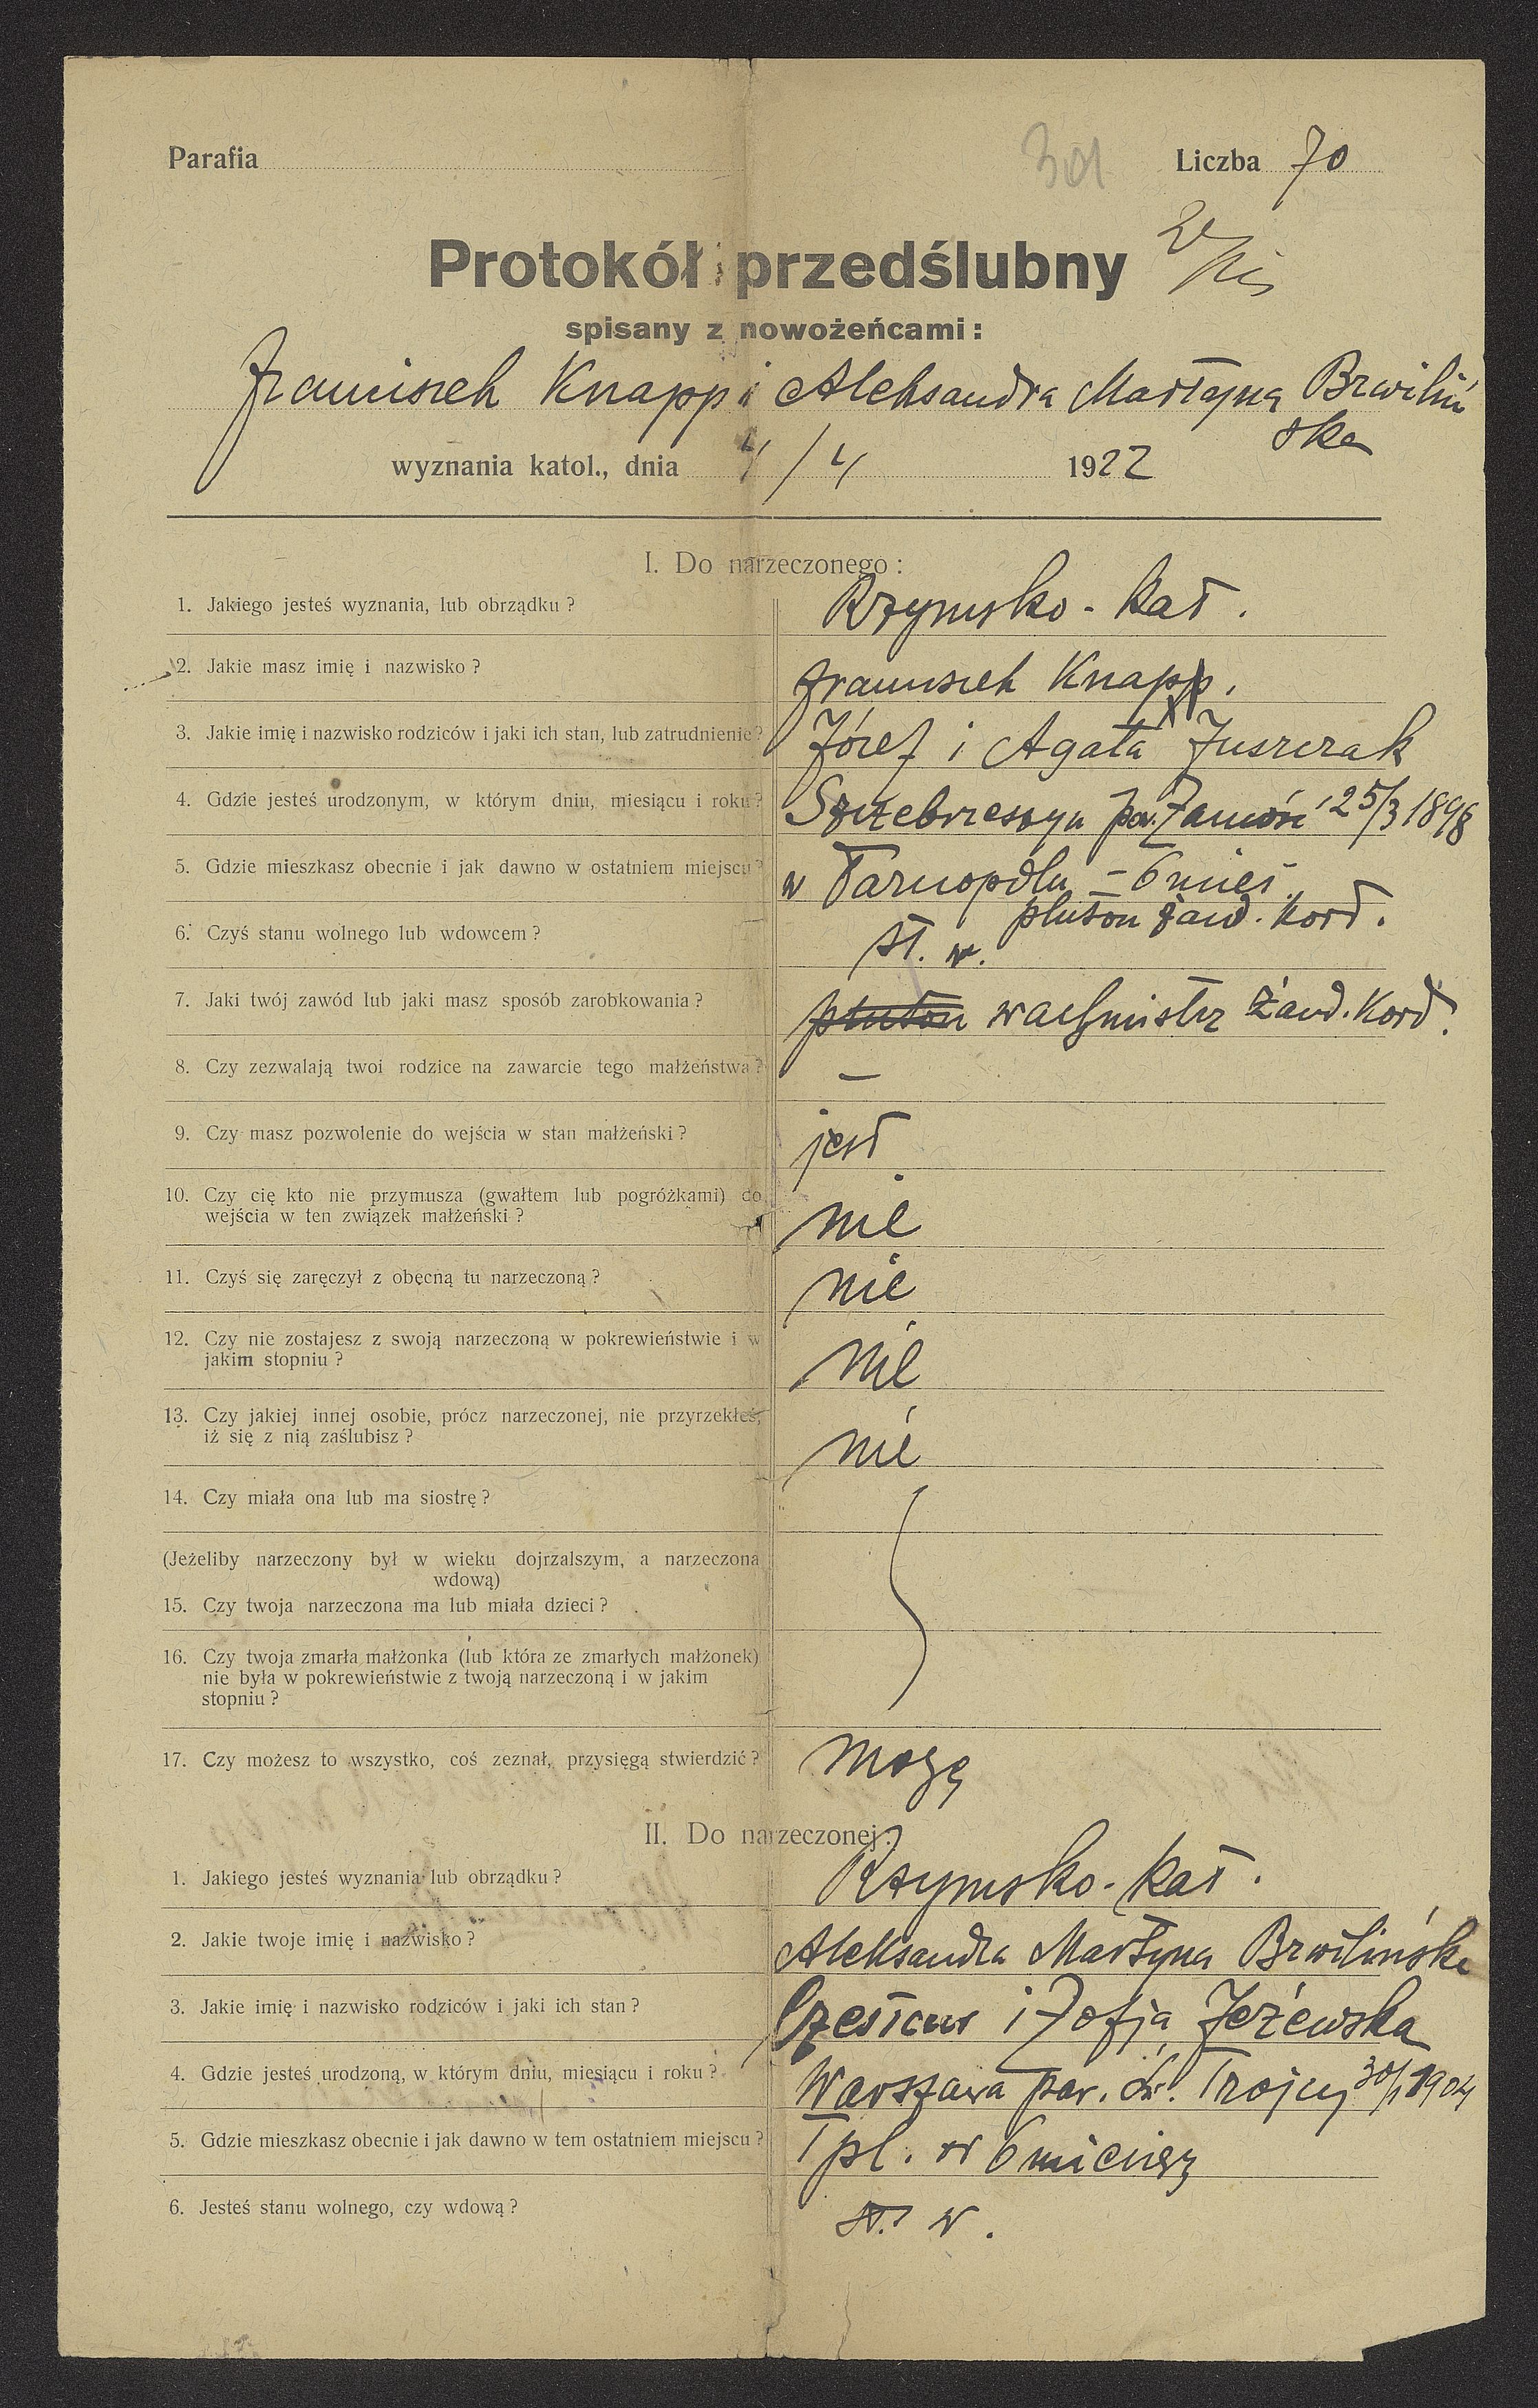 Parafia
301
Liczba 70
Protokół przedślubny
spisany z nowożeńcami:
Franciszek Knapp i Aleksandra Martyna Brwiliń
ska
wyznania katol., dnia 4/4 1922
I. Do narzeczonego:
1. Jakiego jesteś wyznania, lub obrządku? Rzymsko-kat.
2. Jakie masz imię i nazwisko? Franciszek Knapp.
3. Jakie imię i nazwisko rodziców i jaki ich stan, lub zatrudnienie? Józef i Agata Juszczak
4. Gdzie jesteś urodzonym, w którym dniu, miesiącu i roku? Szczebrzeszyn pow. Zamość 25/3 1898
5. Gdzie mieszkasz obecnie i jak dawno w ostatniem miejscu? w Tarnopolu - 6 mies.
pluton żand. Kord.
6. Czyś stanu wolnego lub wdowcem? st. w.
7. Jaki twój zawód lub jaki masz sposób zarobkowania? pluton wachmistrz Żand. Kord.
8. Czy zezwalają twoi rodzice na zawarcie tego małżeństwa? —
9. Czy masz pozwolenie do wejścia w stan małżeński? jest
10. Czy cię kto nie przymusza (gwałtem lub pogróżkami) do
wejścia w ten związek małżeński? nie
11. Czyś się zaręczył z obecną tu narzeczoną? nie
12. Czy nie zostajesz z swoją narzeczoną w pokrewieństwie i w
jakim stopniu? nie
13. Czy jakiej innej osobie, prócz narzeczonej, nie przyrzekłeś,
iż się z nią zaślubisz? nie
14. Czy miała ona lub ma siostrę?
(Jeżeliby narzeczony był w wieku dojrzalszym, a narzeczona
wdową)
15. Czy twoja narzeczona ma lub miała dzieci?
16. Czy twoja zmarła małżonka (lub która ze zmarłych małżonek)
nie była w pokrewieństwie z twoją narzeczoną i w jakim
stopniu?
17. Czy możesz to wszystko, coś zeznał, przysięgą stwierdzić? mogę
II. Do narzeczonej:
1. Jakiego jesteś wyznania lub obrządku? Rzymsko-kat.
2. Jakie twoje imię i nazwisko? Aleksandra Martyna Brwilińska
3. Jakie imię i nazwisko rodziców i jaki ich stan? Czesław i Zofja Jeżewska
4. Gdzie jesteś urodzoną, w którym dniu, miesiącu i roku? Warszawa par. św. Trojcy 30/1 1904
5. Gdzie mieszkasz obecnie i jak dawno w tem ostatniem miejscu? Tpl. od 6 miesięcy
6. Jesteś stanu wolnego, czy wdową? st. w.